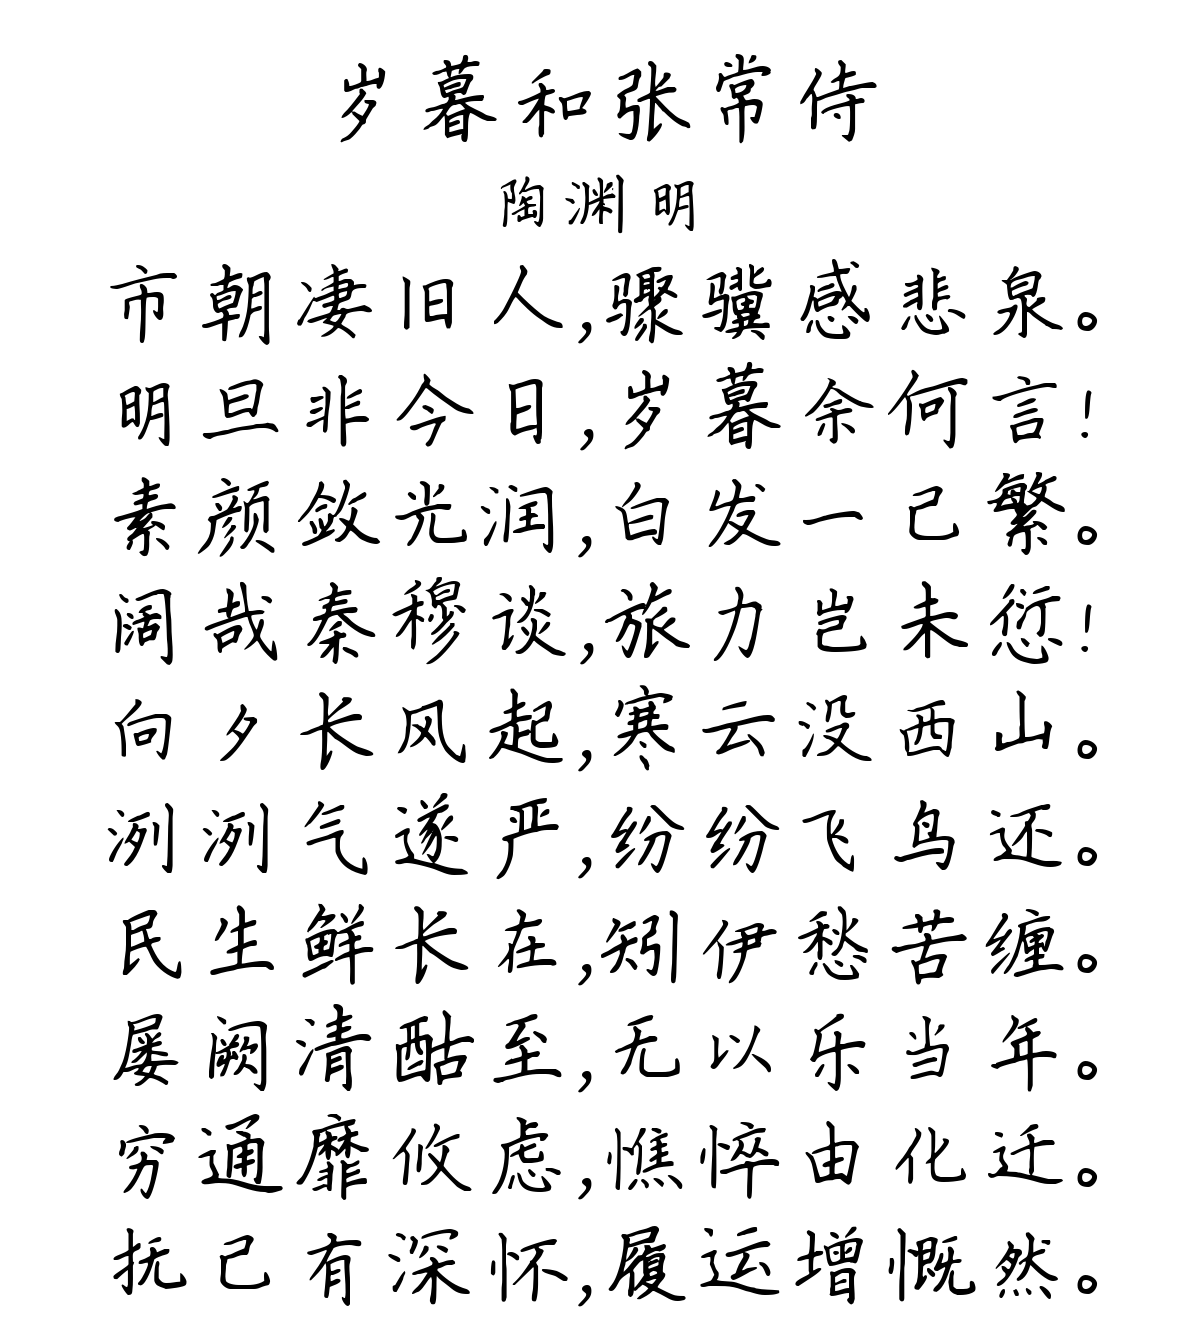 岁暮和张常侍
陶渊明
市朝凄旧人,骤骥感悲泉。
明旦非今日,岁暮余何言!
素颜敛光润,白发一己繁。
阔哉秦穆谈,旅力岂未愆!
向夕长风起,寒云没西山。
洌洌气遂严,纷纷飞鸟还。
民生鲜长在,矧伊愁苦缠。
屡阙清酤至,无以乐当年。
穷通靡攸虑,憔悴由化迁。
抚己有深怀,履运增慨然。